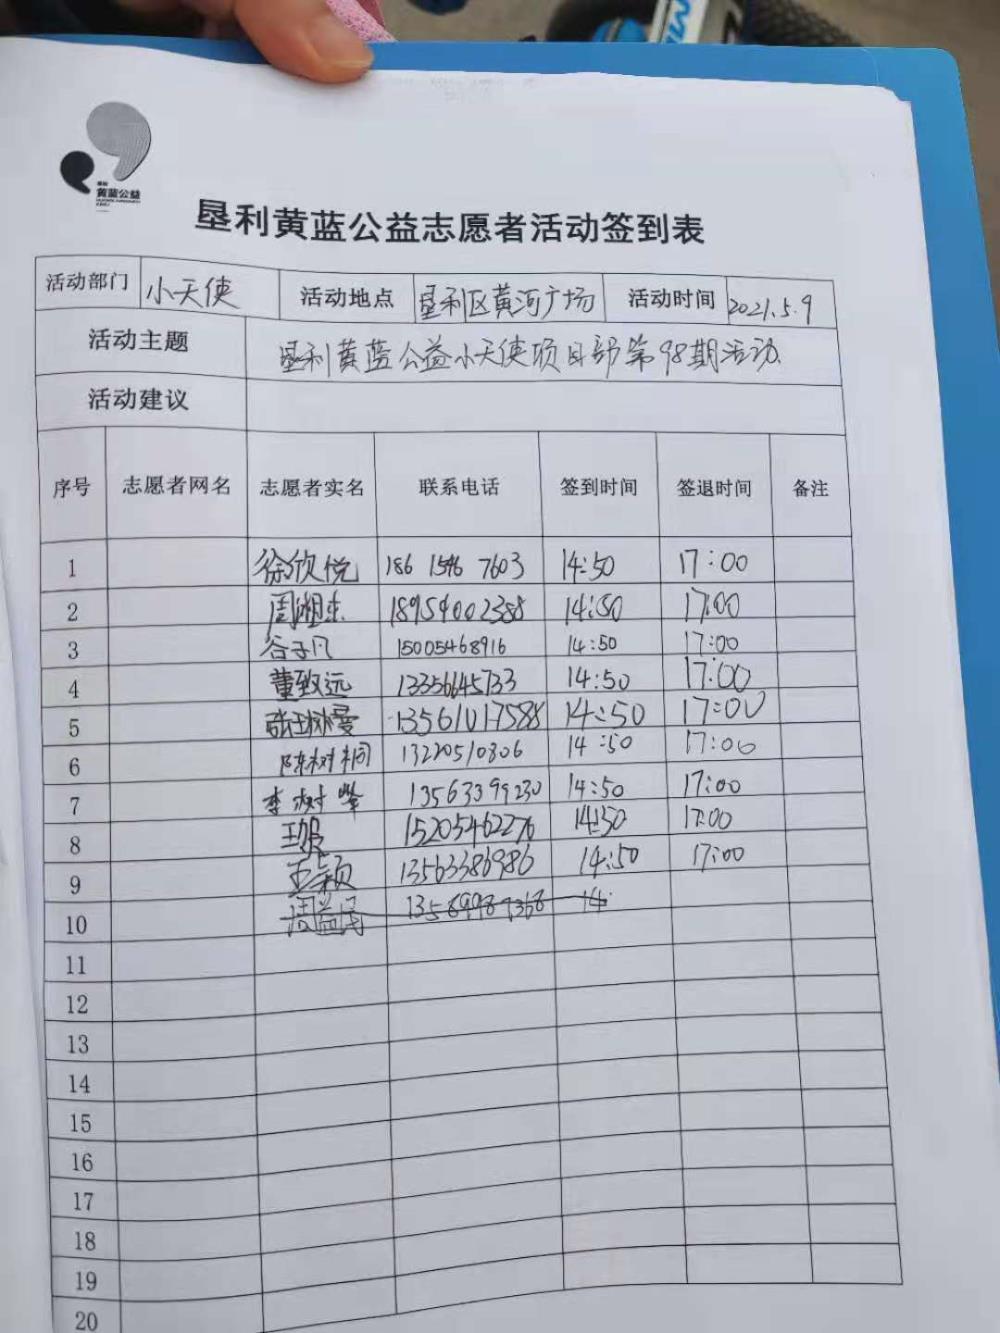 黄蓝公益
垦利黄蓝公益志愿者活动签到表
活动部门 小天使 活动地点 垦利区黄河广场 活动时间 2021.5.9
活动主题 垦利黄蓝公益小天使项目部第98期活动
活动建议
序号 志愿者网名 志愿者实名 联系电话 签到时间 签退时间 备注
1 徐欣悦 186 1546 7603 14:50 17:00
2 周湘东 18954002388 14:50 17:00
3 谷子凡 15005468916 14:50 17:00
4 董致远 13356645733 14:50 17:00
5 13561017588 14:50 17:00
6 陈树桐 13220510806 14:50 17:00
7 李树峰 13563399230 14:50 17:00
8 15205462276 14:50 17:00
9 王颖 13563386986 14:50 17:00
10 周益民 13589987368 14
11
12
13
14
15
16
17
18
19
20